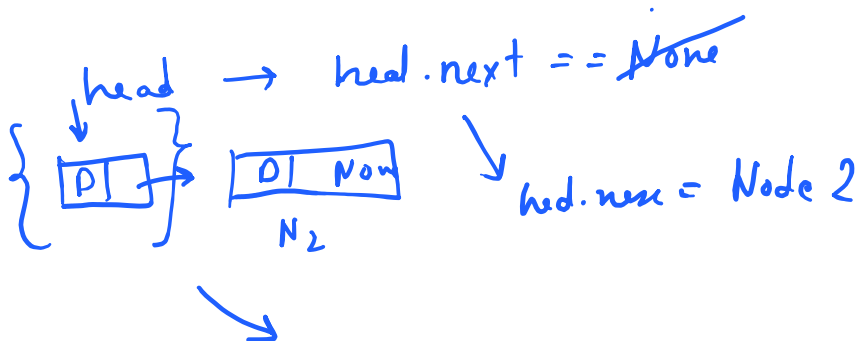 head → head.next == None
D | D | None
hed.nex = Node 2
N2